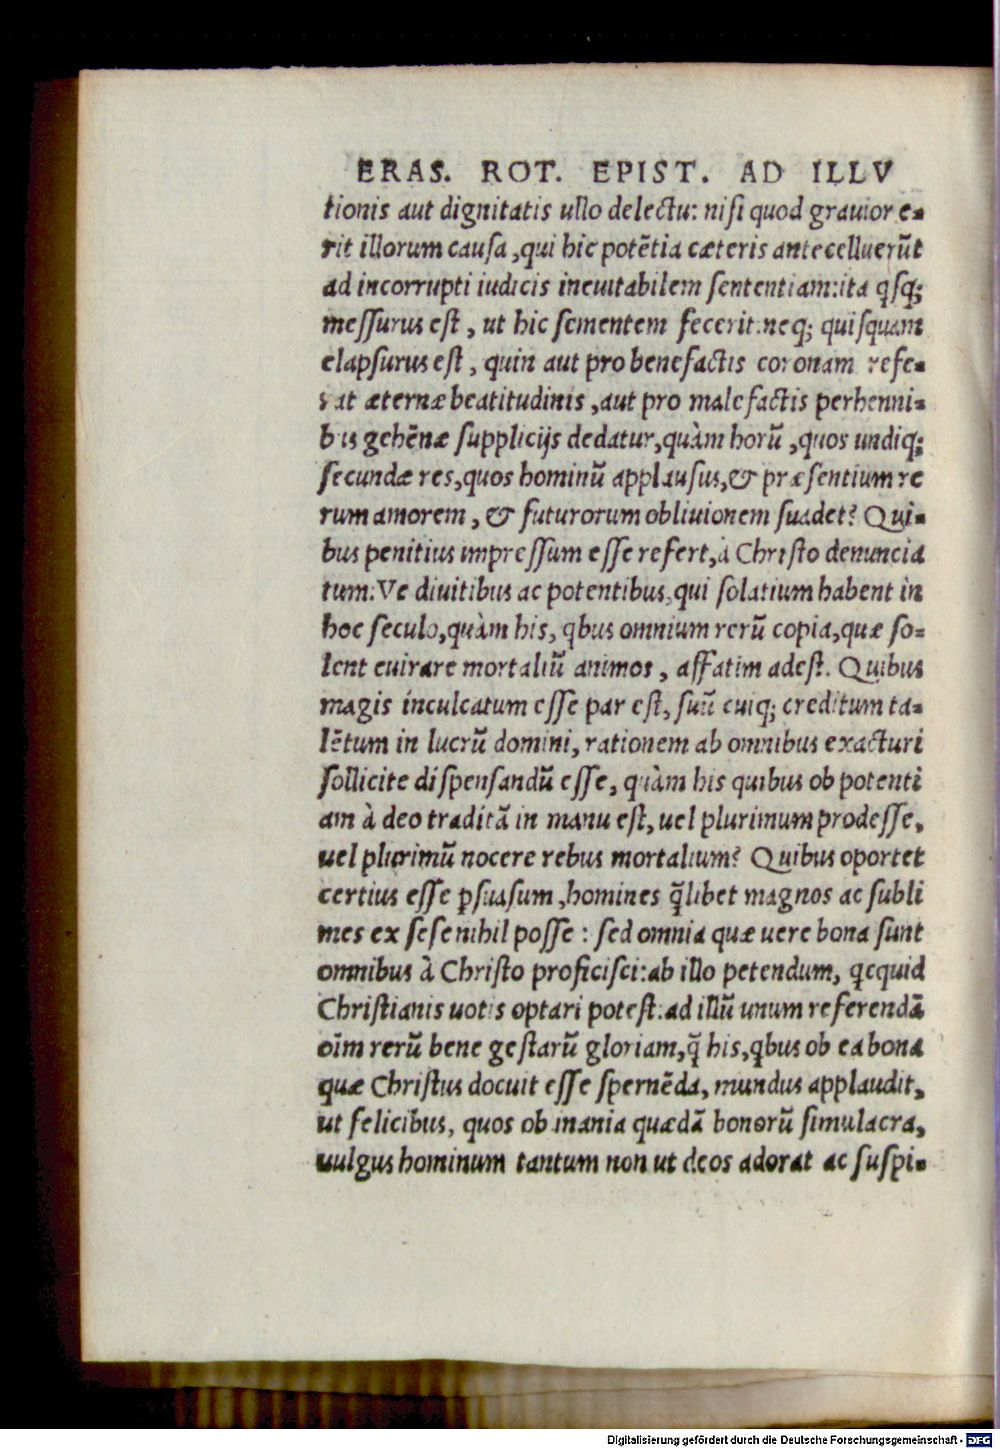 ERAS. ROT. EPIST. AD ILLV
tionis aut dignitatis ullo delectu: nisi quod grauior e=
rit illorum causa, qui hic potẽtia cæteris antecelluerũt
ad incorrupti iudicis ineuitabilem sententiam: ita qsq;
messurus est, ut hic sementem fecerit. neq; quisquam
elapsurus est, quin aut pro benefactis coronam refe=
rat æternæ beatitudinis, aut pro malefactis perhenni=
bus gehẽnæ supplicijs dedatur, quàm horũ, quos undiq;
secundæ res, quos hominũ applausus, & præsentium re
rum amorem, & futurorum obliuionem suadet? Qui=
bus penitius impressum esse refert, à Christo denuncia
tum: Ve diuitibus ac potentibus, qui solatium habent in
hoc seculo, quàm his, qbus omnium rerũ copia, quæ so=
lent euirare mortaliũ animos, affatim adest. Quibus
magis inculcatum esse par est, suũ cuiq; creditum ta=
lẽtum in lucrũ domini, rationem ab omnibus exacturi
sollicite dispensandũ esse, quàm his quibus ob potenti
am à deo traditã in manu est, uel plurimum prodesse,
uel plurimũ nocere rebus mortalium? Quibus oportet
certius esse ꝑsuasum, homines q̃libet magnos ac subli
mes ex sese nihil posse: sed omnia quæ uere bona sunt
omnibus à Christo proficisci: ab illo petendum, qcquid
Christianis uotis optari potest: ad illũ unum referendã
oĩm rerũ bene gestarũ gloriam, q̃ his, qbus ob ea bona
quæ Christus docuit esse spernẽda, mundus applaudit,
ut felicibus, quos ob inania quædã bonorũ simulacra,
uulgus hominum tantum non ut deos adorat ac suspi=
Digitalisierung gefördert durch die Deutsche Forschungsgemeinschaft - DFG